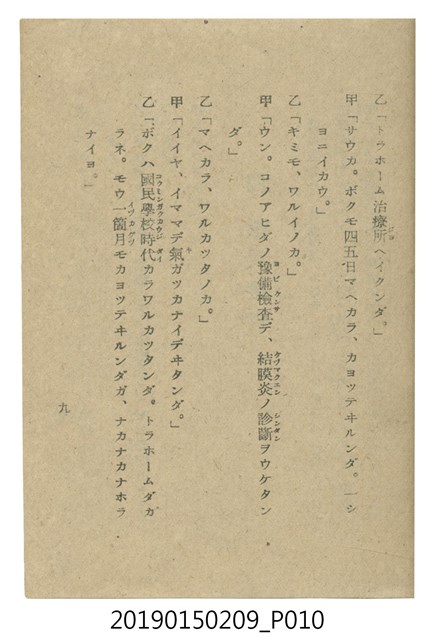 乙「トラホーム治療所ヘイクンダ。」
甲「サウカ。ボクモ四五日マヘカラ、カヨッテヰルンダ。一シ
ヨニイカウ。」
乙「キミモ、ワルイノカ。」
甲「ウン。コノアヒダノ豫備檢査デ、結膜炎ノ診斷ヲウケタン
ダ。」
乙「マヘカラ、ワルカツタノカ。」
甲「イイヤ、イママデ氣ガツカナイデヰタンダ。」
乙「ボクハ國民學校時代カラワルカツタンダ。トラホームダガ
ラネ。モウ一箇月モカヨッテヰルンダガ、ナカナカナホラ
ナイヨ。」
九
20190150209_P010